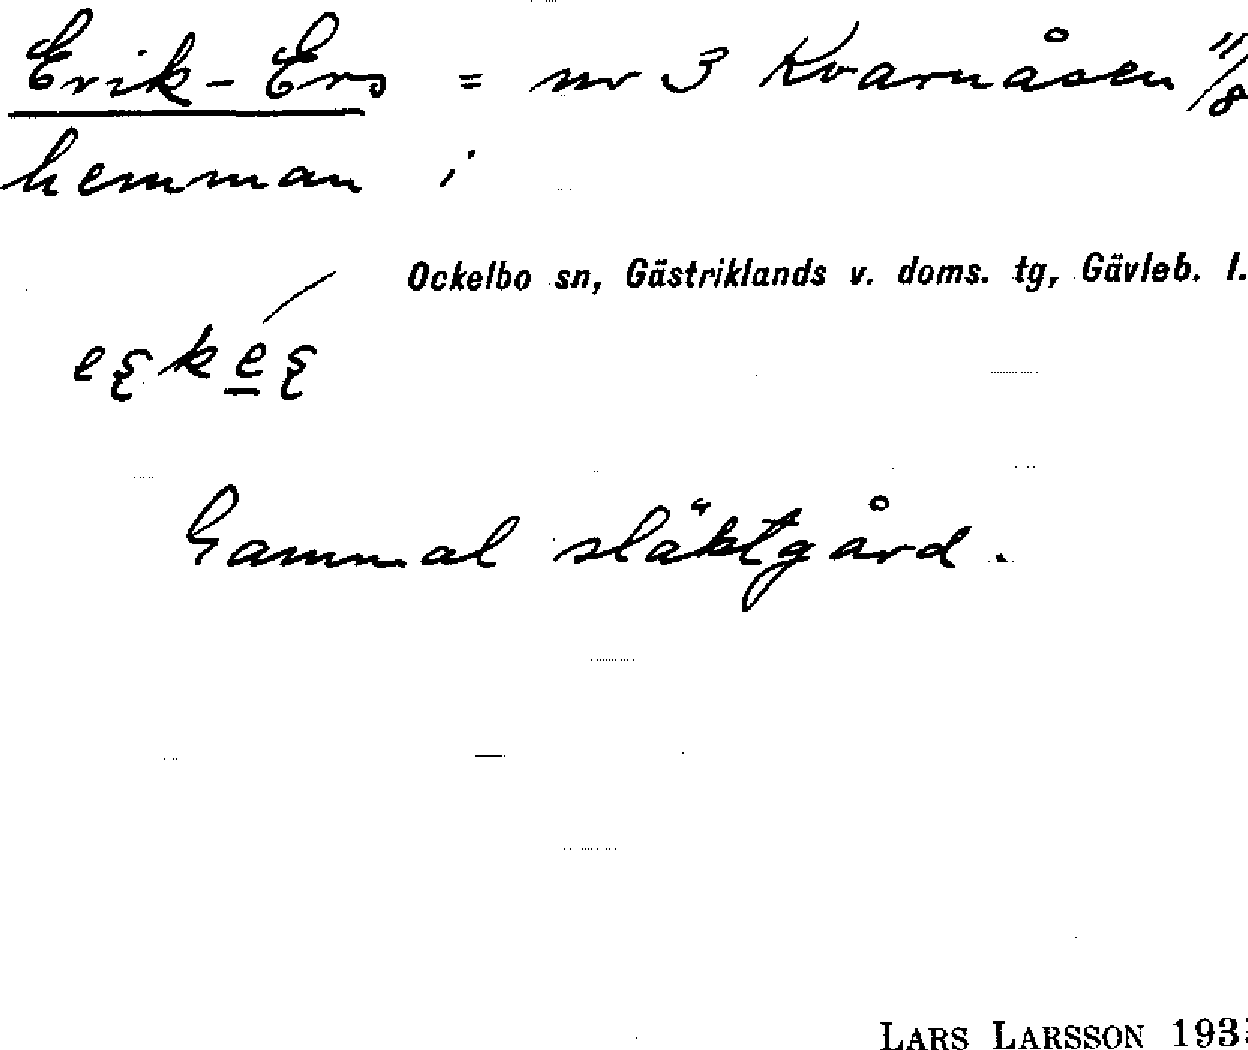 Erik-Ers = nr 3 Kvarnåsen 11/8
hemman i
Ockelbo sn, Gästriklands v. doms. tg, Gävleb. l.
Gammal släktgård.
LARS LARSSON 193